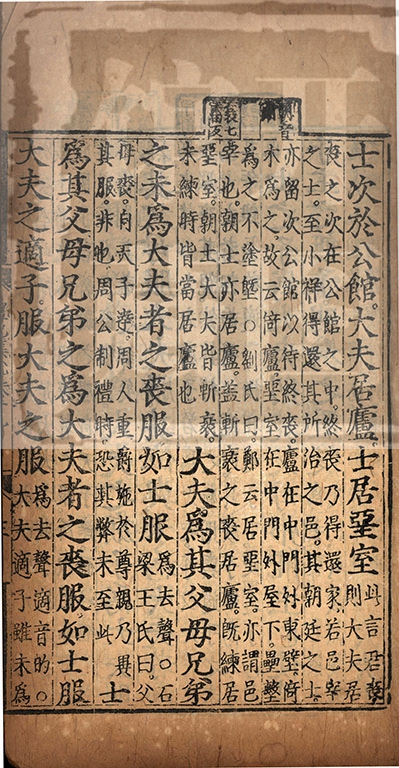 士次於公館。大夫居廬士居堊室此言君喪
則大夫居
喪之次在公館之中。終喪乃得還家。若邑宰
之士。至小祥得還其所治之邑。其朝廷之士。
亦留次公館以待終喪。廬在中門外東壁。倚
木為之。故云倚廬。堊室在中門外屋下。壘墼
為之。不塗墍○劉氏曰。鄭云居堊室。亦謂邑
宰也。朝士亦居廬。蓋斬衰之喪居廬。旣練居
堊室。朝士大夫皆斬衰。
未練時皆當居廬也
大夫為其父母兄弟
之未為大夫者之喪服。如士服為去聲○石
梁王氏曰。父
母喪。自天子達。周人重爵。施於尊親。乃異
其服。非也。周公制禮時。恐其弊未至此
士
為其父母兄弟之為大夫者之喪服。如士服
大夫之適子。服大夫之服為去聲適音的○
大夫適子雖未為